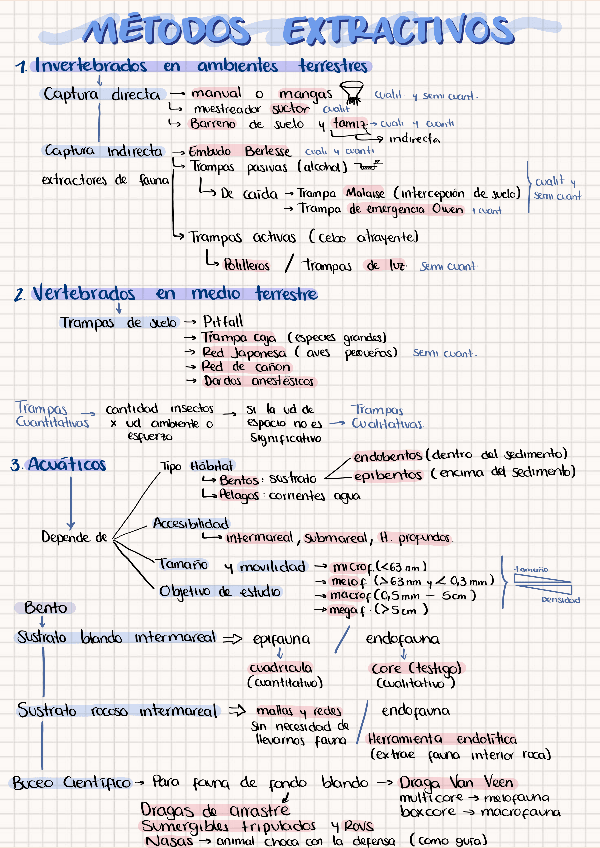 MÉTODOS EXTRACTIVOS
1. Invertebrados en ambientes terrestres
Captura directa → manual o mangas cualit y semi cuant.
↳ muestreador suctor cualit
↳ Barreno de suelo y tamiz → cuali y cuanti
→ indirecta
Captura Indirecta → Embudo Berlesse cuali y cuanti
extractores de fauna
↳ Trampas pasivas (alcohol)
↳ De caída → Trampa Malaise (intercepción de suelo)
→ Trampa de emergencia Owen 1 cuant
cualit y
semi cuant
↳ Trampas activas (cebo atrayente)
↳ Polilleros / trampas de luz semi cuant.
2. Vertebrados en medio terrestre
Trampas de suelo → Pitfall
→ Trampa caja (especies grandes)
→ Red Japonesa (aves pequeños) semi cuant.
→ Red de cañon
→ Dardos anestésicos
Trampas
Cuantitativas → cantidad insectos
x ud ambiente o
esfuerzo → si la ud de
espacio no es
significativo → Trampas
Cualitativas
3. Acuáticos
Depende de
Tipo Hábitat
↳ Bentos: sustrato
endobentos (dentro del sedimento)
epibentos (encima del sedimento)
↳ Pelagos: corrientes agua
Accesibilidad
↳ intermareal, submareal, H. profundos.
Tamaño y movilidad → microf. (<63 nm)
Objetivo de estudio
→ meiof. (>63 nm y < 0,3 mm)
→ macrof (0,5 mm - 5cm)
→ megaf. (>5cm)
tamaño
Densidad
Bento
Sustrato blando intermareal ⇒ epifauna / endofauna
cuadricula
(cuantitativo)
core (testigo)
(cualitativo)
Sustrato rocoso intermareal ⇒ mallas y redes / endofauna
sin necesidad de
llevarnos fauna
Herramienta endolítica
(extrae fauna interior roca)
Buceo Científico → Para fauna de fondo blando → Draga Van Veen
multicore → meiofauna
boxcore → macrofauna
Dragas de arrastre
Sumergibles tripulados y ROVs
Nasas → animal choca con la defensa (como gura)